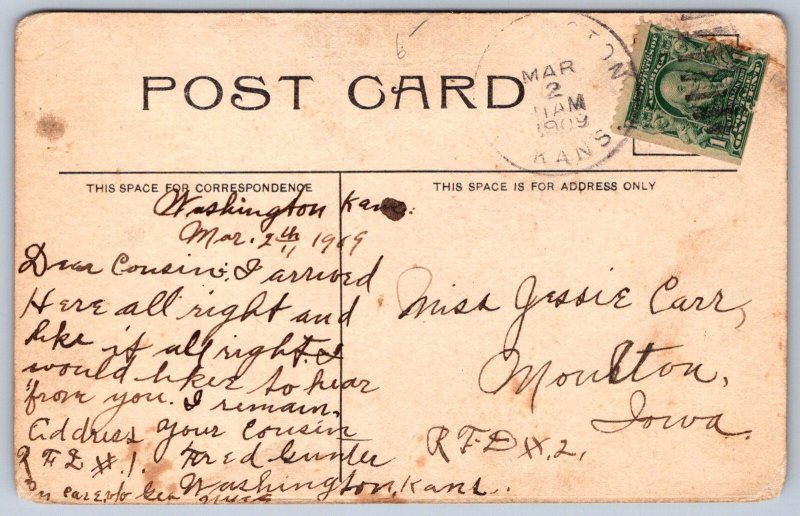 POST CARD
MAR
2
11 AM
1909
KANS
THIS SPACE FOR CORRESPONDENCE
THIS SPACE IS FOR ADDRESS ONLY
Washington Kans.
Mar. 2th 1909
Dear Cousin: I arrived
Here all right and
like it all right. I
would like to hear
from you. I remain,
Address Your Cousin
R F D #.1. Fred Gunter
Washington, Kans.
Miss Jessie Carr,
Moulton,
Iowa.
R F D #.2,